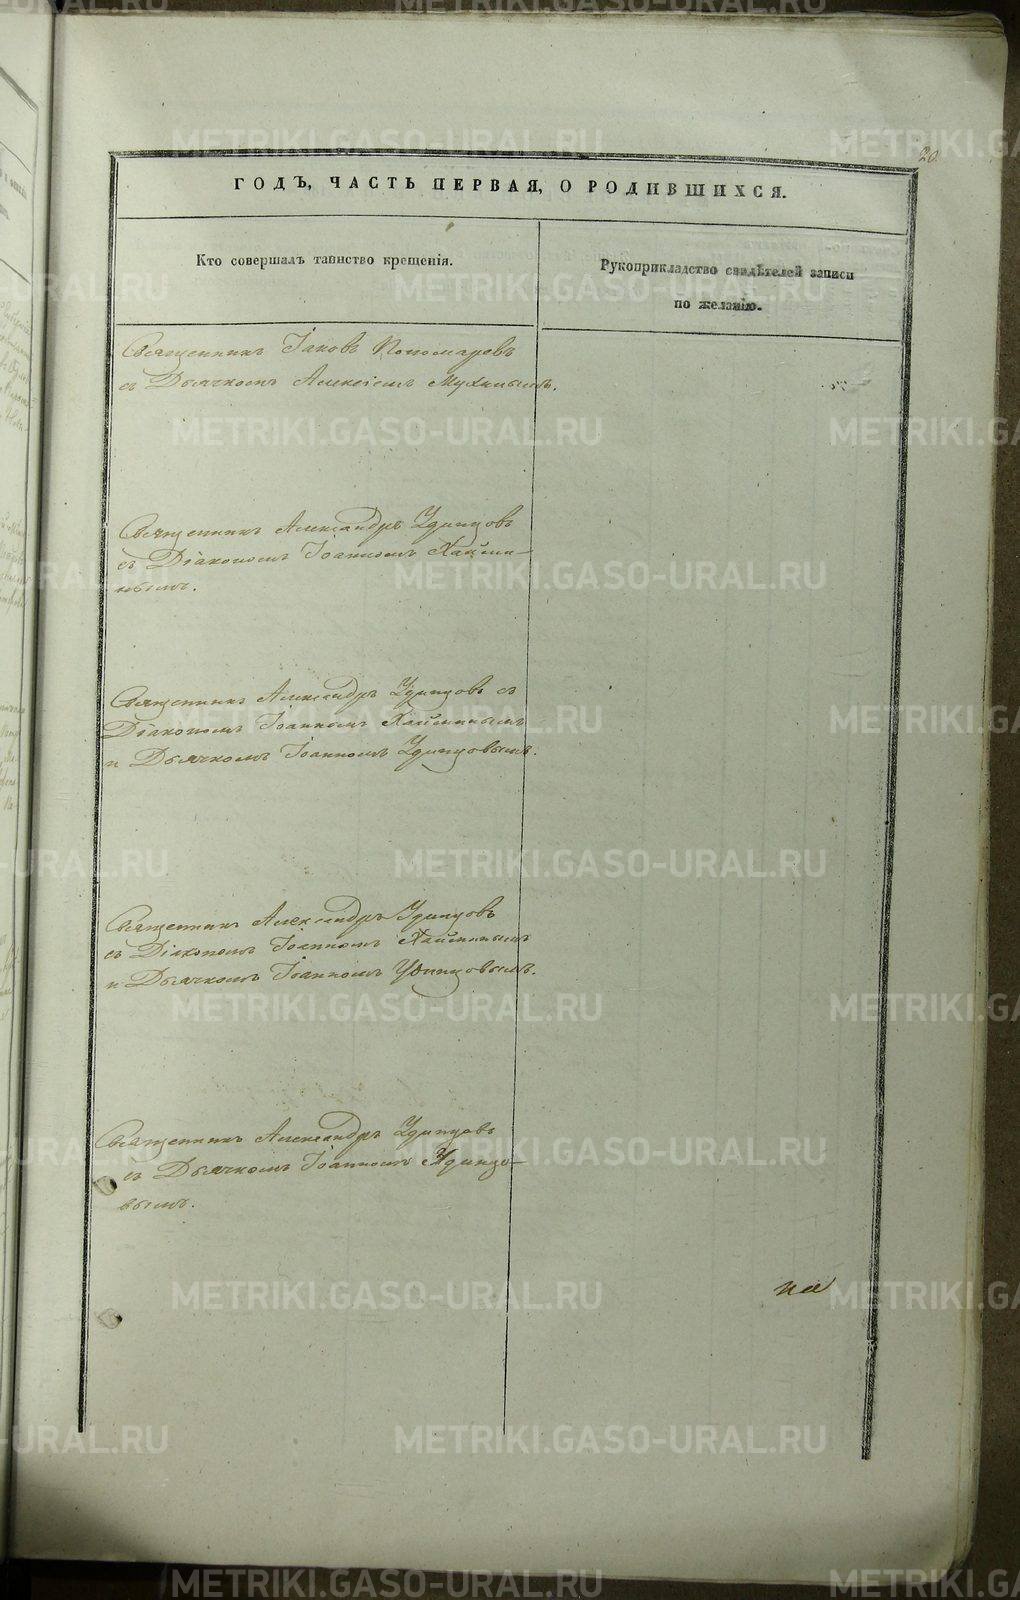 20
ГОДЪ, ЧАСТЬ ПЕРВАЯ, О РОДИВШИХСЯ.
Кто совершалъ таинство крещенія.
Рукоприкладство свидѣтелей записи
по желанію.
Священникъ Іаковъ Пономаревъ
съ Дьячкомъ Алексіемъ
Священникъ Александръ Удинцовъ
съ Діакономъ Іоанномъ
нымъ.
Священникъ Александръ Удинцовъ съ
Діакономъ Іоанномъ
и Дьячкомъ Іоанномъ Удинцовымъ.
Священникъ Александръ Удинцовъ
съ Діакономъ Іоанномъ
и Дьячкомъ Іоанномъ Удинцовымъ.
Священникъ Александръ Удинцовъ
съ Дьячкомъ Іоанномъ Удинцо-
вымъ.
на
METRIKI.GASO-URAL.RU